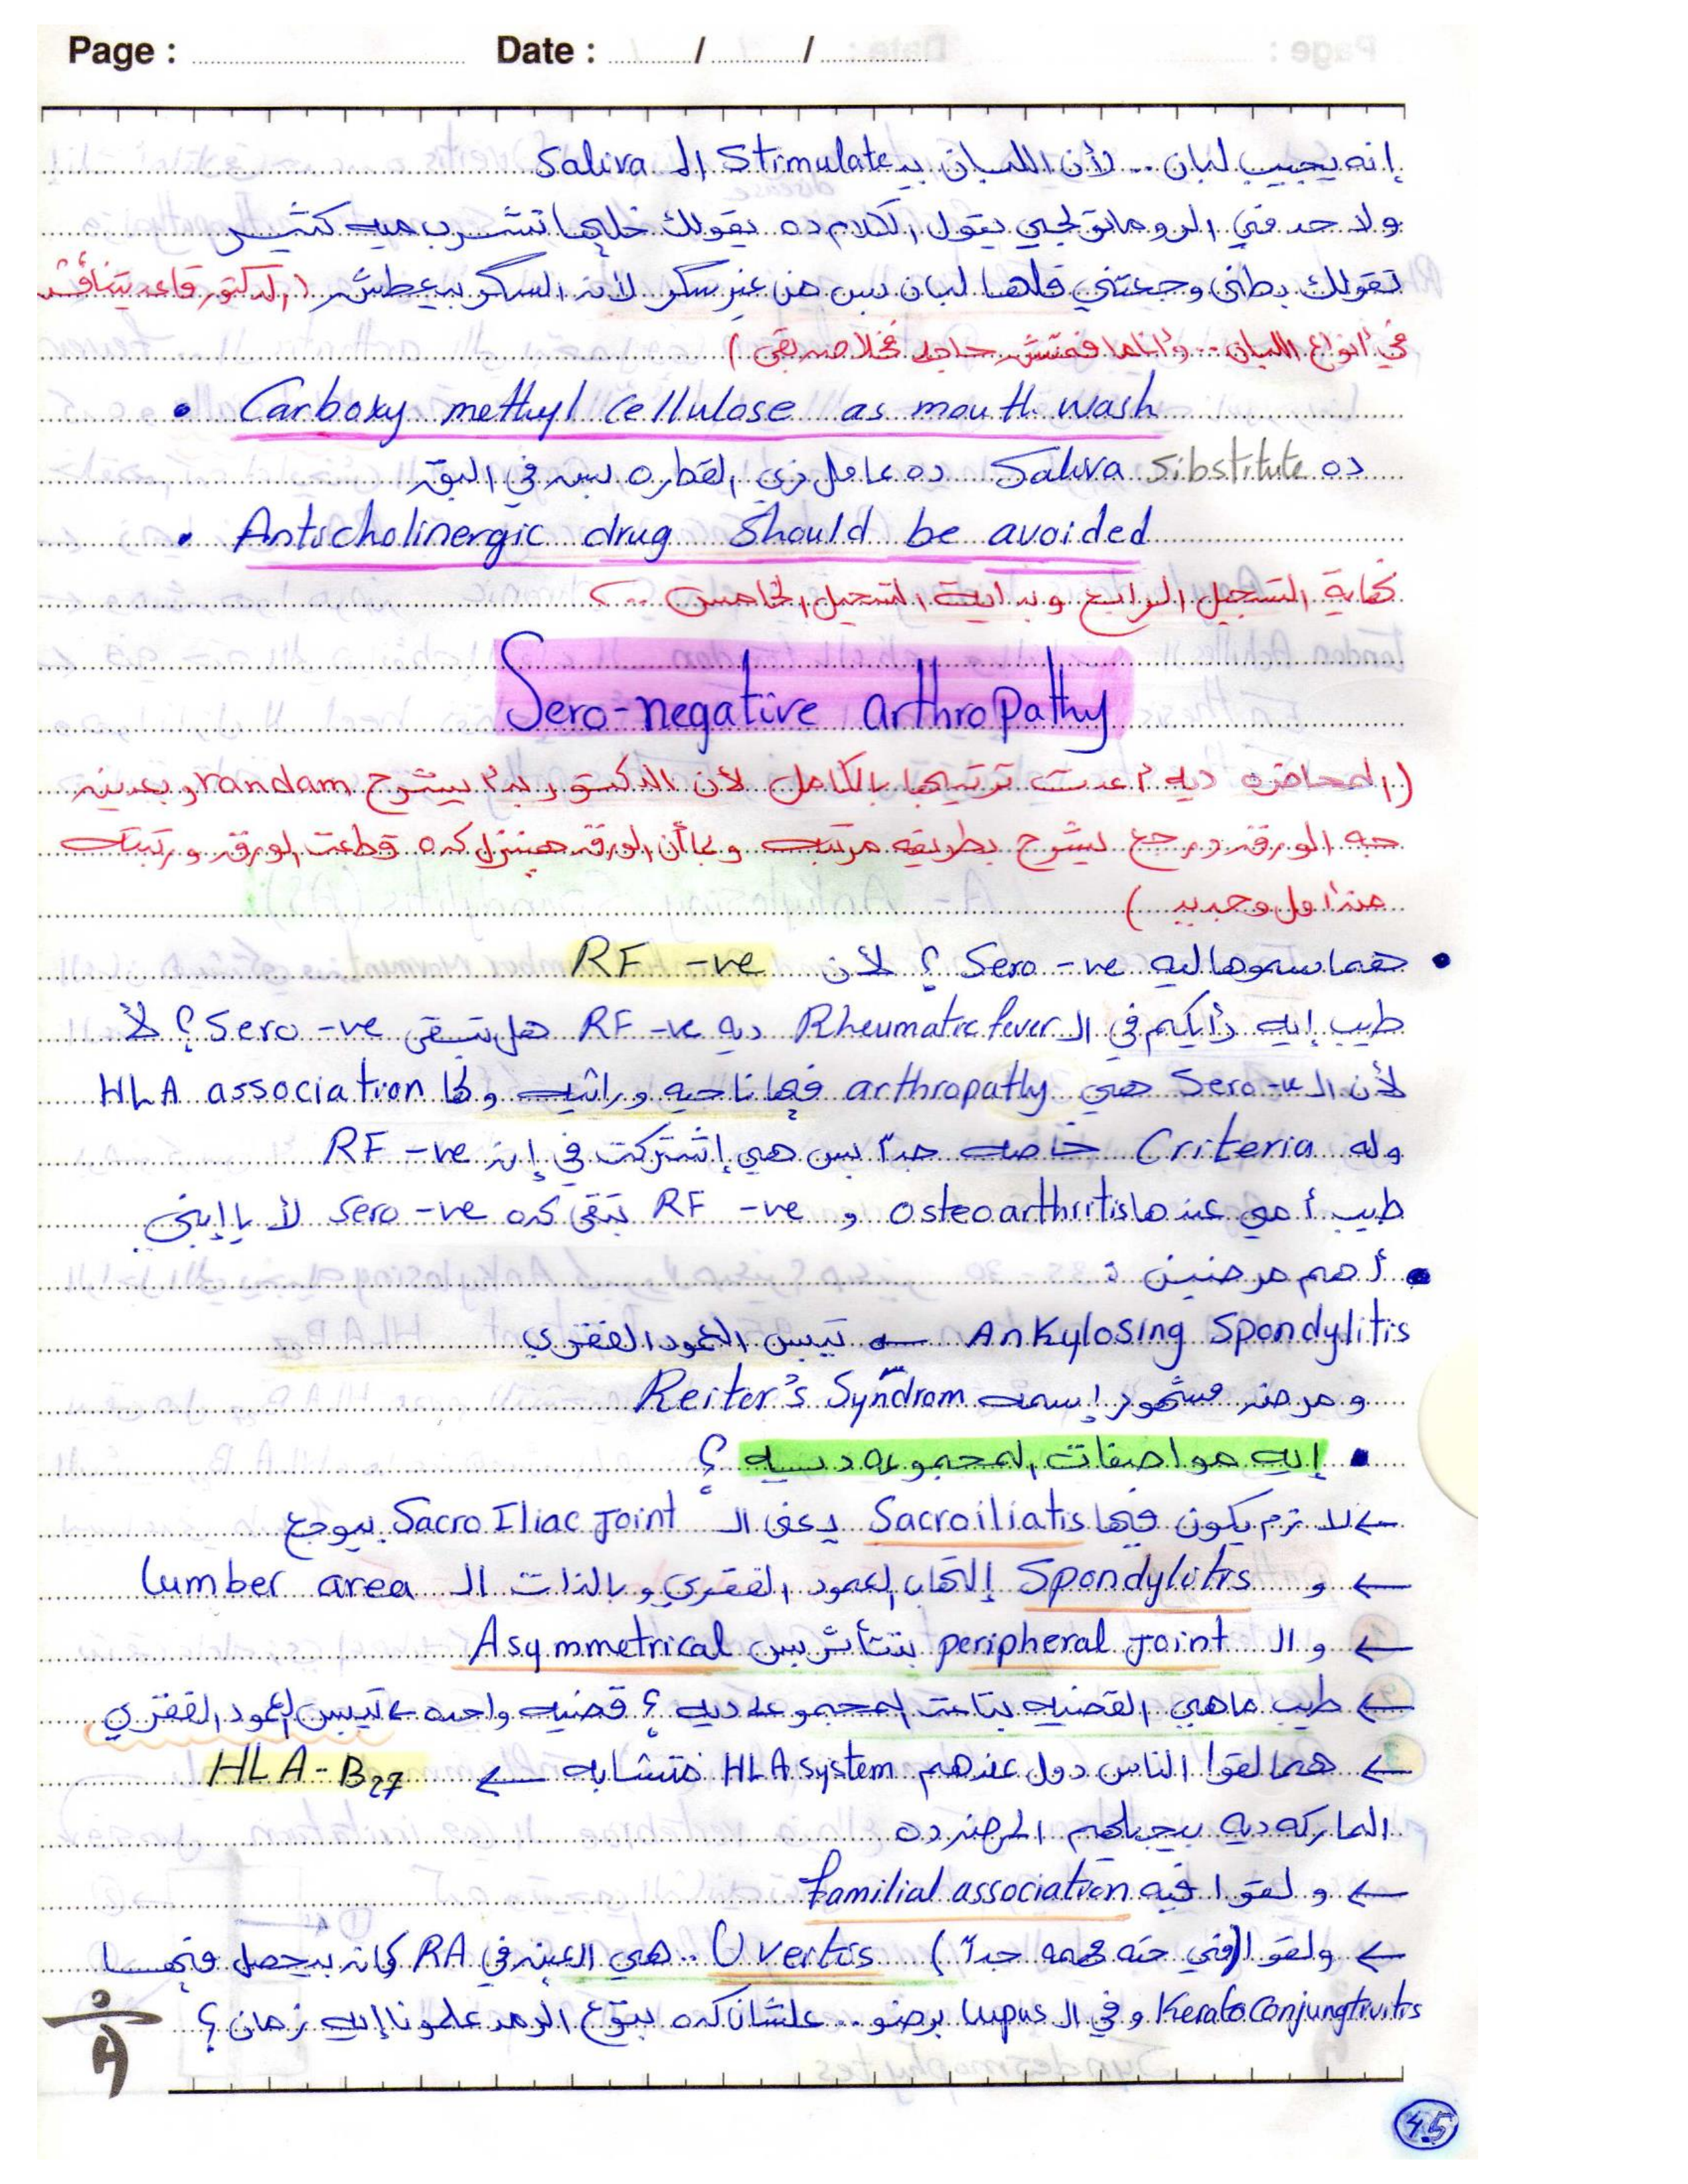 Page : Date : / /
إنه يجيب لبان .. لأن اللبان بـ Stimulate الـ Saliva
ولا حد في الروماتولجي يقول الكلام ده يقولك خليها تشرب ميه كتير
تقولك بطني وجعتني قلها لبان بس من غير سكر لأن السكر بيعطش (الدكتور قاعد يتناقش
في أنواع اللبان .. وأنا ما فهمتش حاجه)
• Carboxy methyl cellulose as mouth wash
ده Saliva Sibstitute ده عامل زي القطره بس في البق
• Anticholinergic drug should be avoided
نهاية التسجيل الرابع وبداية التسجيل الخامس ..
Sero-negative arthropathy
(المحاضره ديه أعدت ترتيبها بالكامل لأن الدكتور بدأ يشرح random وبعدين
جه الورقه ورجع يشرح بطريقه مرتبه وبما أن الورقه هينزل كده قطعت الورقه ورتبته
من أول وجديد)
• هما سموها ليه Sero -ve ؟ لأن RF -ve
طيب إيه رأيكم في الـ Rheumatic fever ديه RF -ve هل تبقى Sero -ve ؟ لأ
لأن الـ Sero -ve هي arthropathy فيها ناحيه وراثيه ولها HLA association
وله Criteria خاصه جداً بس هي إشتركت في إن RF -ve
طيب أمي عندها osteoarthritis و RF -ve تبقى كده sero -ve لأ يا إبني
• أهم مرضين :
Ankylosing Spondylitis ← تيبس العمود الفقري
ومرض مشهور إسمه Reiter's Syndrom
• إيه مواصفات المجموعه ديه ؟
← لازم يكون فيها Sacroiliatis يعني الـ Sacro Iliac Joint بيوجع
← و Spondylitis إلتهاب العمود الفقري وبالذات الـ lumber area
← والـ peripheral Joint بتتأثر بس Asymmetrical
← طيب ماهي القضيه بتاعت المجموعه ديه ؟ قضيه واحده ← تيبس العمود الفقري
← هما لقوا الناس دول عندهم HLA system متشابه ← HLA-B27
الماركه ديه بيجيلهم المرض ده
← ولقوا فيه familial association
← ولقوا (في حته مهمه جداً) Uveitis .. هي العين في RA كان بيحصل فيها
Kerato conjungtivitis وفي الـ Lupus برضو .. علشان كده بتوع الرمد علمونا إيه زمان ؟
45